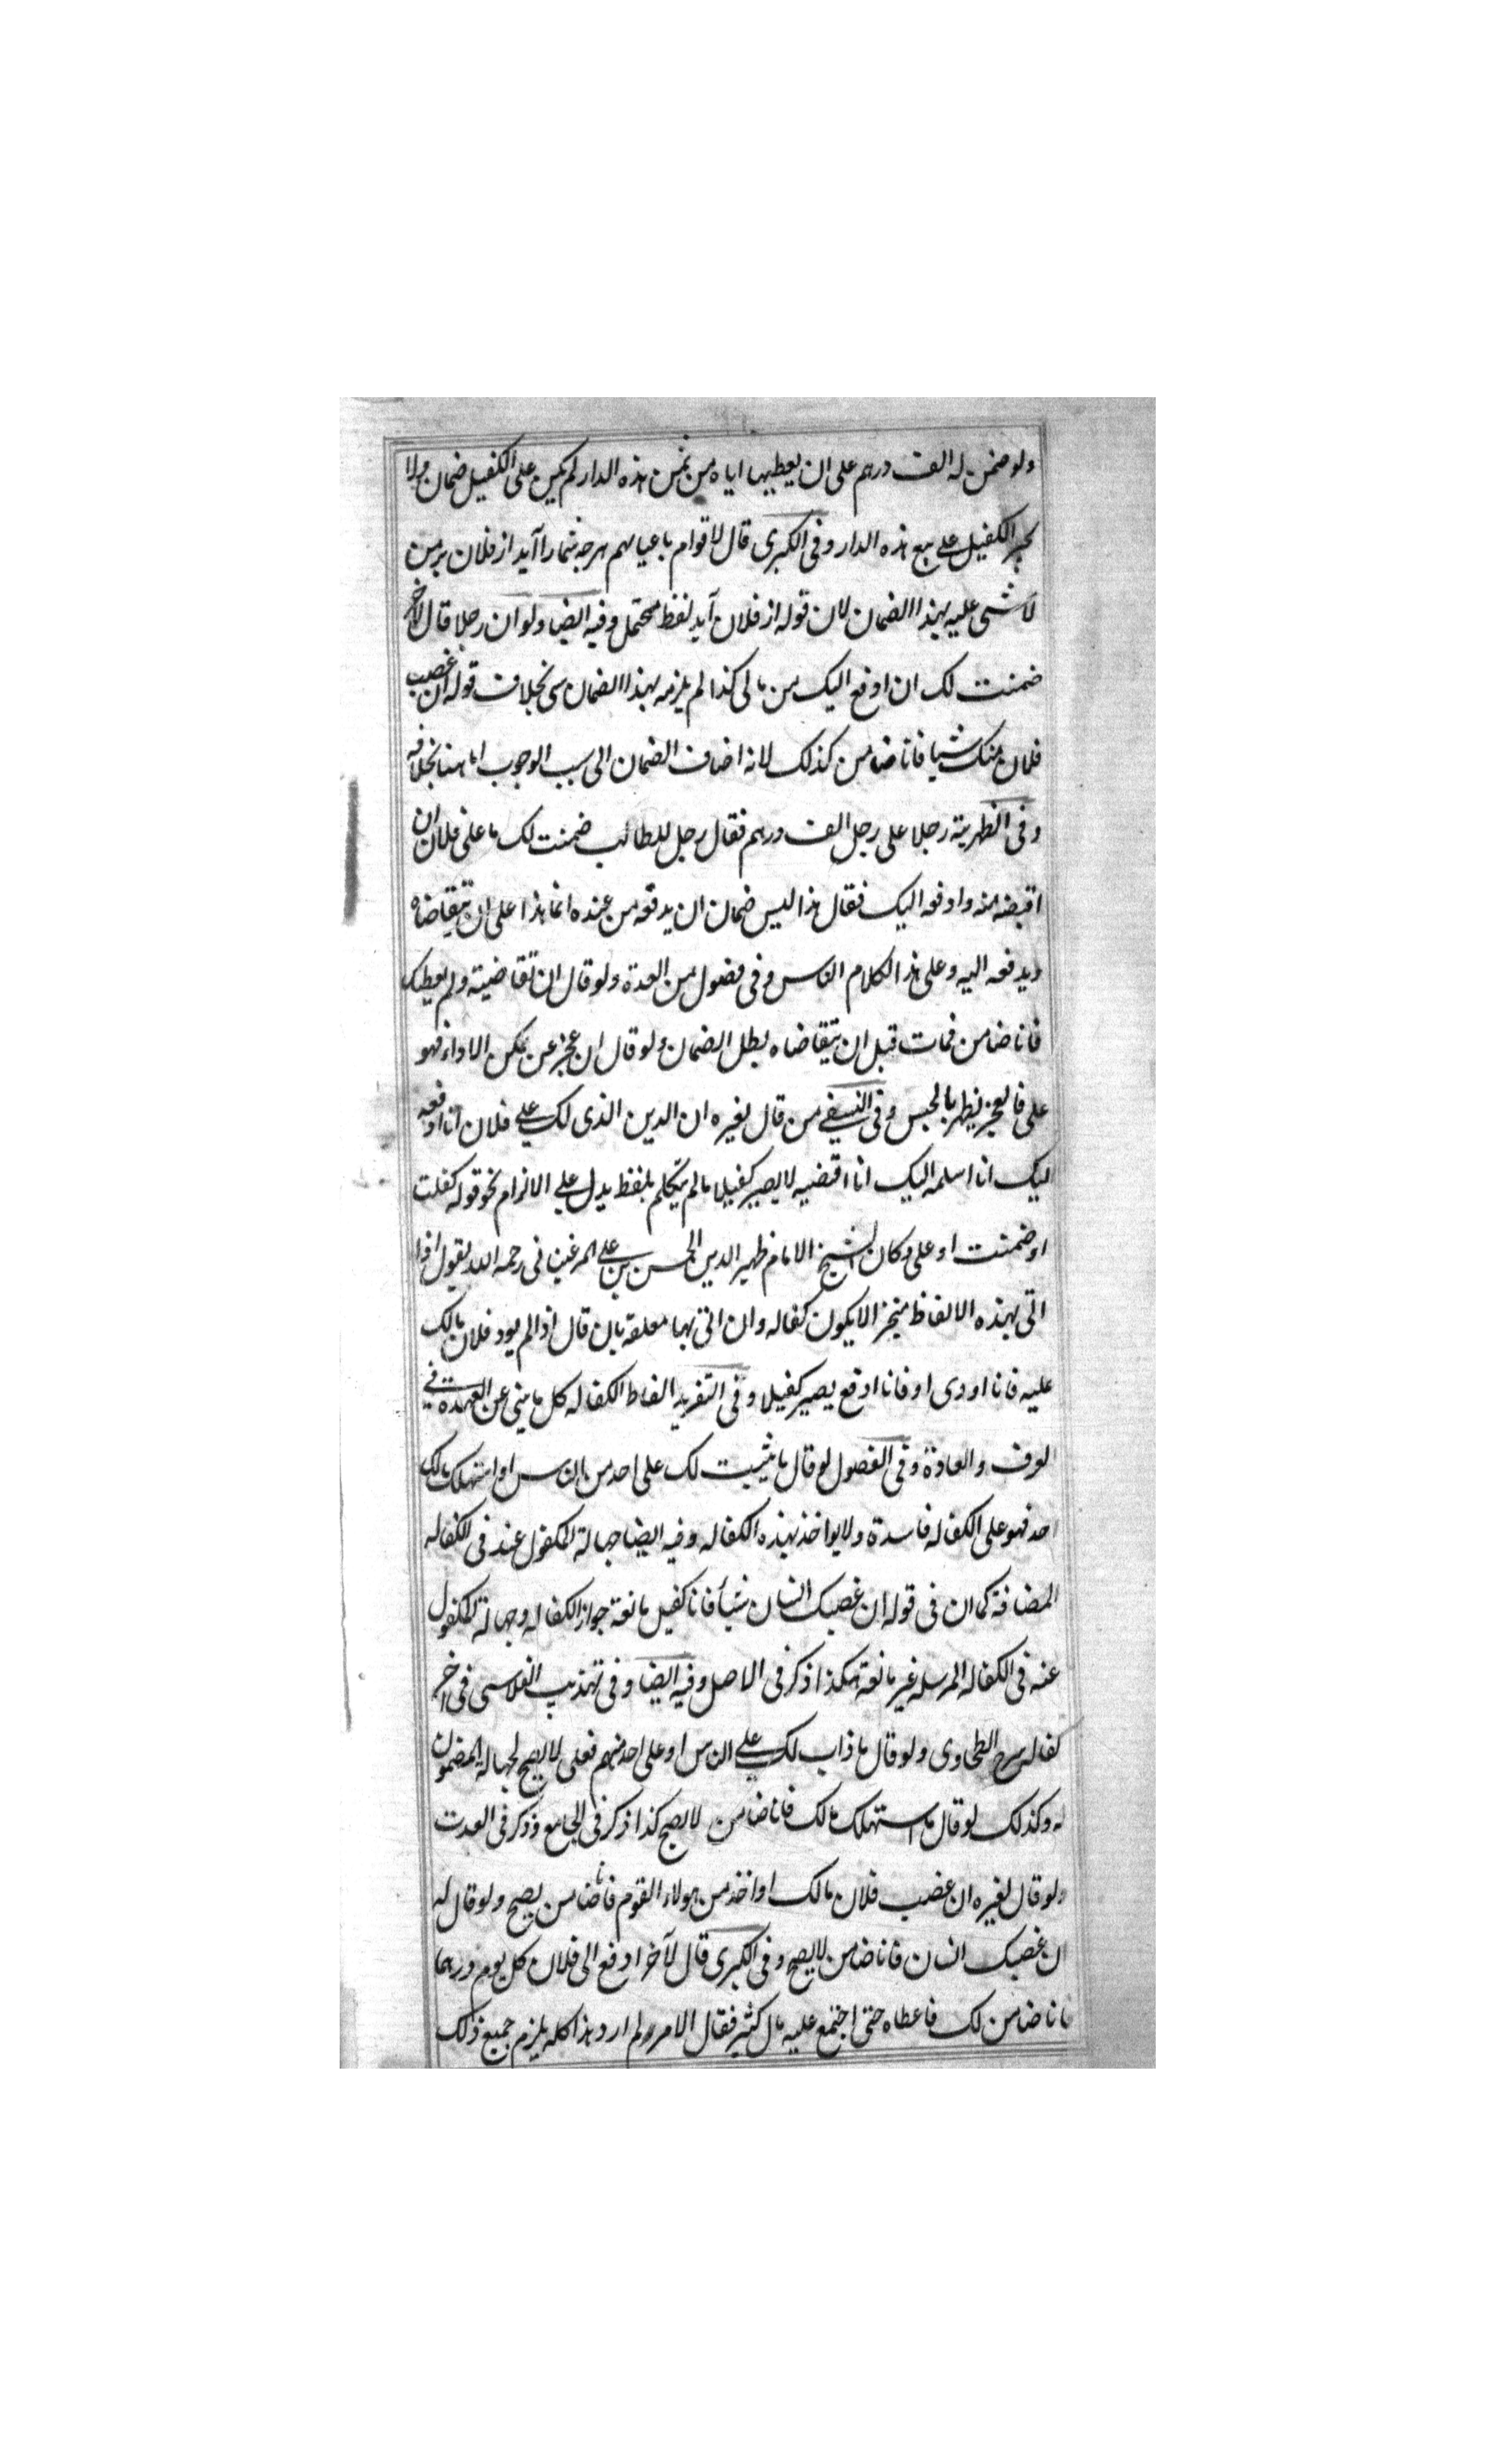 ولو ضمن له الف درهم على ان يعطيها اياه من ثمن هذه الدار لم يكن على الكفيل ضمان ولا
يجبر الكفيل على بيع هذه الدار وفى الكبرى قال لاقوام باعيانهم هرجه شمارا آيد از فلان بر من
لا شى عليه بهذا الضمان لان قوله از فلان آيد لفظ محتمل وفيه ايضا ولو ان رجلا قال لاخر
ضمنت لك ان ادفع اليك من مالى كذا لم يلزمه بهذا الضمان شى بخلاف قوله ان غصب
فلان منك شيا فانا ضامن كذلك لانه اضاف الضمان الى سبب الوجوب اما هنا بخلافه
وفى الظهرية رجلا على رجل الف درهم فقال رجل للطالب ضمنت لك ما على فلان ان
اقبضه منه وادفعه اليك فقال هذا ليس ضمان ان يدفعه من عنده انما هذا على ان يتقاضاه
ويدفعه اليه وعلى هذا لكلام الناس وفى فصول من العدة ولو قال ان تقاضيته ولم يعطك
فانا ضامن فمات قبل ان يتقاضاه بطل الضمان ولو قال ان عجز عن يمكن الاداء فهو
على فالعجز يظهر بالحبس وفى النسفى من قال لغيره ان الدين الذى لك على فلان انا ادفعه
اليك انا اسلمه اليك انا اقضيه لا يصير كفيلا ما لم يتكلم بلفظ يدل على الالزام نحو قوله كفلت
او ضمنت او على وكان الشيخ الامام ظهير الدين الحسن بن على المرغينانى رحمه الله يقول اذا
اتى بهذه الالفاظ منجزا لا يكون كفاله وان اتى بها معلقه بان قال اذا لم يود فلان مالك
عليه فانا اودى او فانا ادفع يصير كفيلا وفى التفريد الفاظ الكفاله كل ما ينبى عن العهدة فى
العرف والعادة وفى الفصول لو قال ما يثبت لك على احد من الناس او استهلك مالك
احد فهو على الكفاله فاسدة ولا يواخذ بهذه الكفاله وفيه ايضا جهالة المكفول عنه فى الكفاله
المضافة كما ان فى قوله ان غصبك انسان شيأ فانا كفيل مانعة جواز الكفاله وجهالة المكفول
عنه فى الكفاله المرسله غير مانعة هكذا ذكر فى الاصل وفيه ايضا وفى تهذيب القلانسى فى اخر
كفاله شرح الطحاوى ولو قال ما ذاب لك على الناس او على احد منهم فعلى لا يصح لجهالة المضمون
له وكذلك لو قال ما استهلك مالك فانا ضامن لا يصح كذا ذكر فى الجامع وذكر فى العدت
ولو قال لغيره ان غصب فلان مالك او اخذ من هولاء القوم فانا ضامن يصح ولو قال له
ان غصبك انسان فانا ضامن لا يصح وفى الكبرى قال لآخر ادفع الى فلان كل يوم درهما
فانا ضامن لك فاعطاه حتى اجتمع عليه مال كثير فقال الامر ولم ارد هذا كله يلزم جميع ذلك